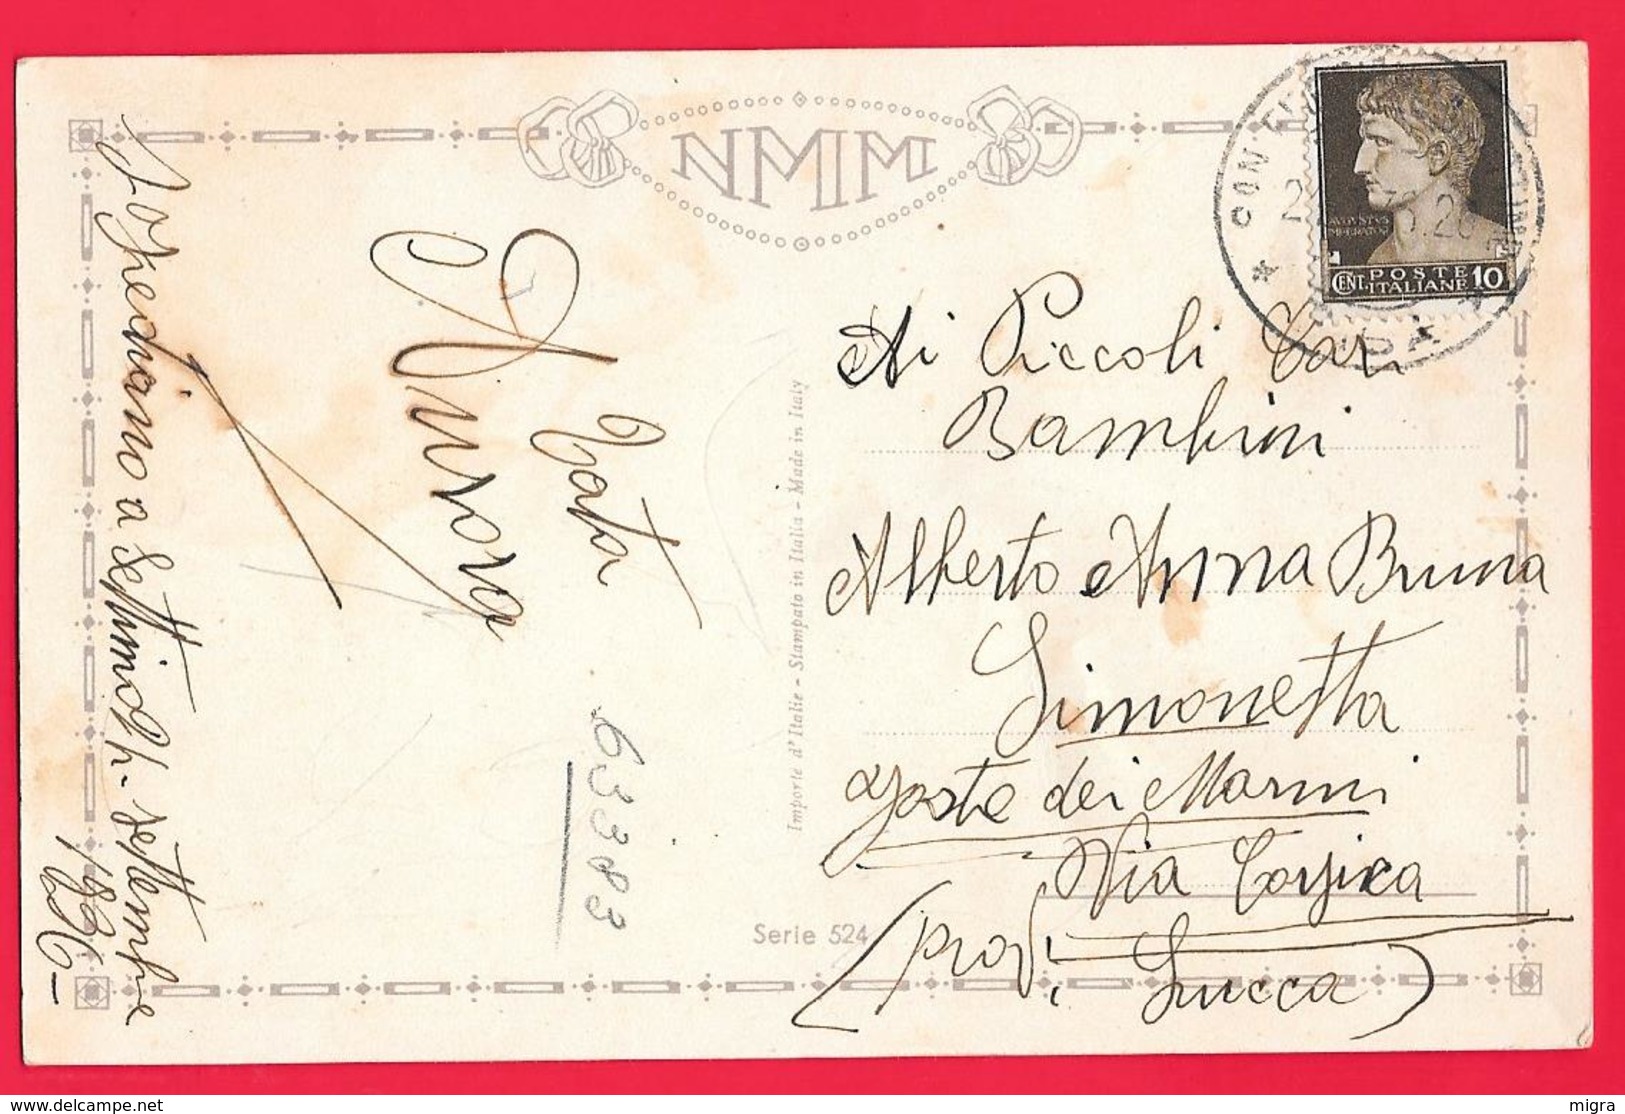 NMM
AVGVSTVS
IMPERATOR
CENT. POSTE ITALIANE 10
Ai Piccoli Cari
Bambini
Alberto Anna Bruna
Simonetta
Forte dei Marmi
Via Corsica
(prov. Lucca)
Zata
Aurora
a Settimo
settembre
1936-
63383
Importé d'Italie - Stampato in Italia - Made in Italy
Serie 524
www.delcampe.net
migra